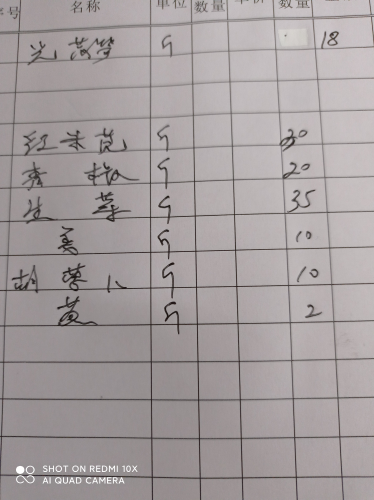 序号 名称 单位 数量 单价 数量
光 莴笋 斤 18
红米苋 斤 30
斤 20
生 菜 斤 35
姜 斤 10
胡 萝 卜 斤 10
斤 2
SHOT ON REDMI 10X
AI QUAD CAMERA